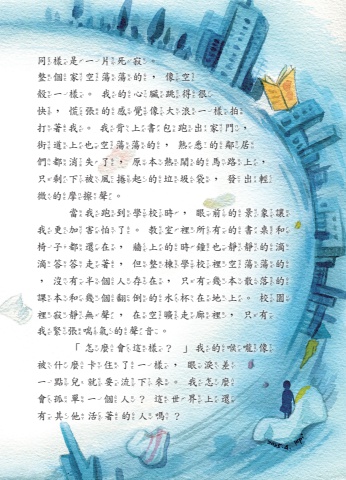 同樣是一片死寂。
整個家空蕩蕩的，像空
殼一樣。我的心臟跳得很
快，慌張的感覺像大浪一樣拍
打著我。我背上書包跑出家門，
街道上也空蕩蕩的，熟悉的鄰居
們都消失了，原本熱鬧的馬路上，
只剩下被風捲起的垃圾袋，發出輕
微的摩擦聲。
當我跑到學校時，眼前的景象讓
我更加害怕了。教室裡所有的書桌和
椅子都還在，牆上的時鐘也靜靜的滴
滴答答走著，但整棟學校裡空蕩蕩的
，沒有半個人存在，只有幾本散落的
課本和幾個翻倒的水杯在地上。校園
裡寂靜無聲，在空曠走廊裡，只有
我緊張喘氣的聲音。
「怎麼會這樣？」我的喉嚨像
被什麼卡住了一樣，眼淚差
一點兒就要流下來。我怎麼
會孤單一個人？這世界上還
有其他活著的人嗎？